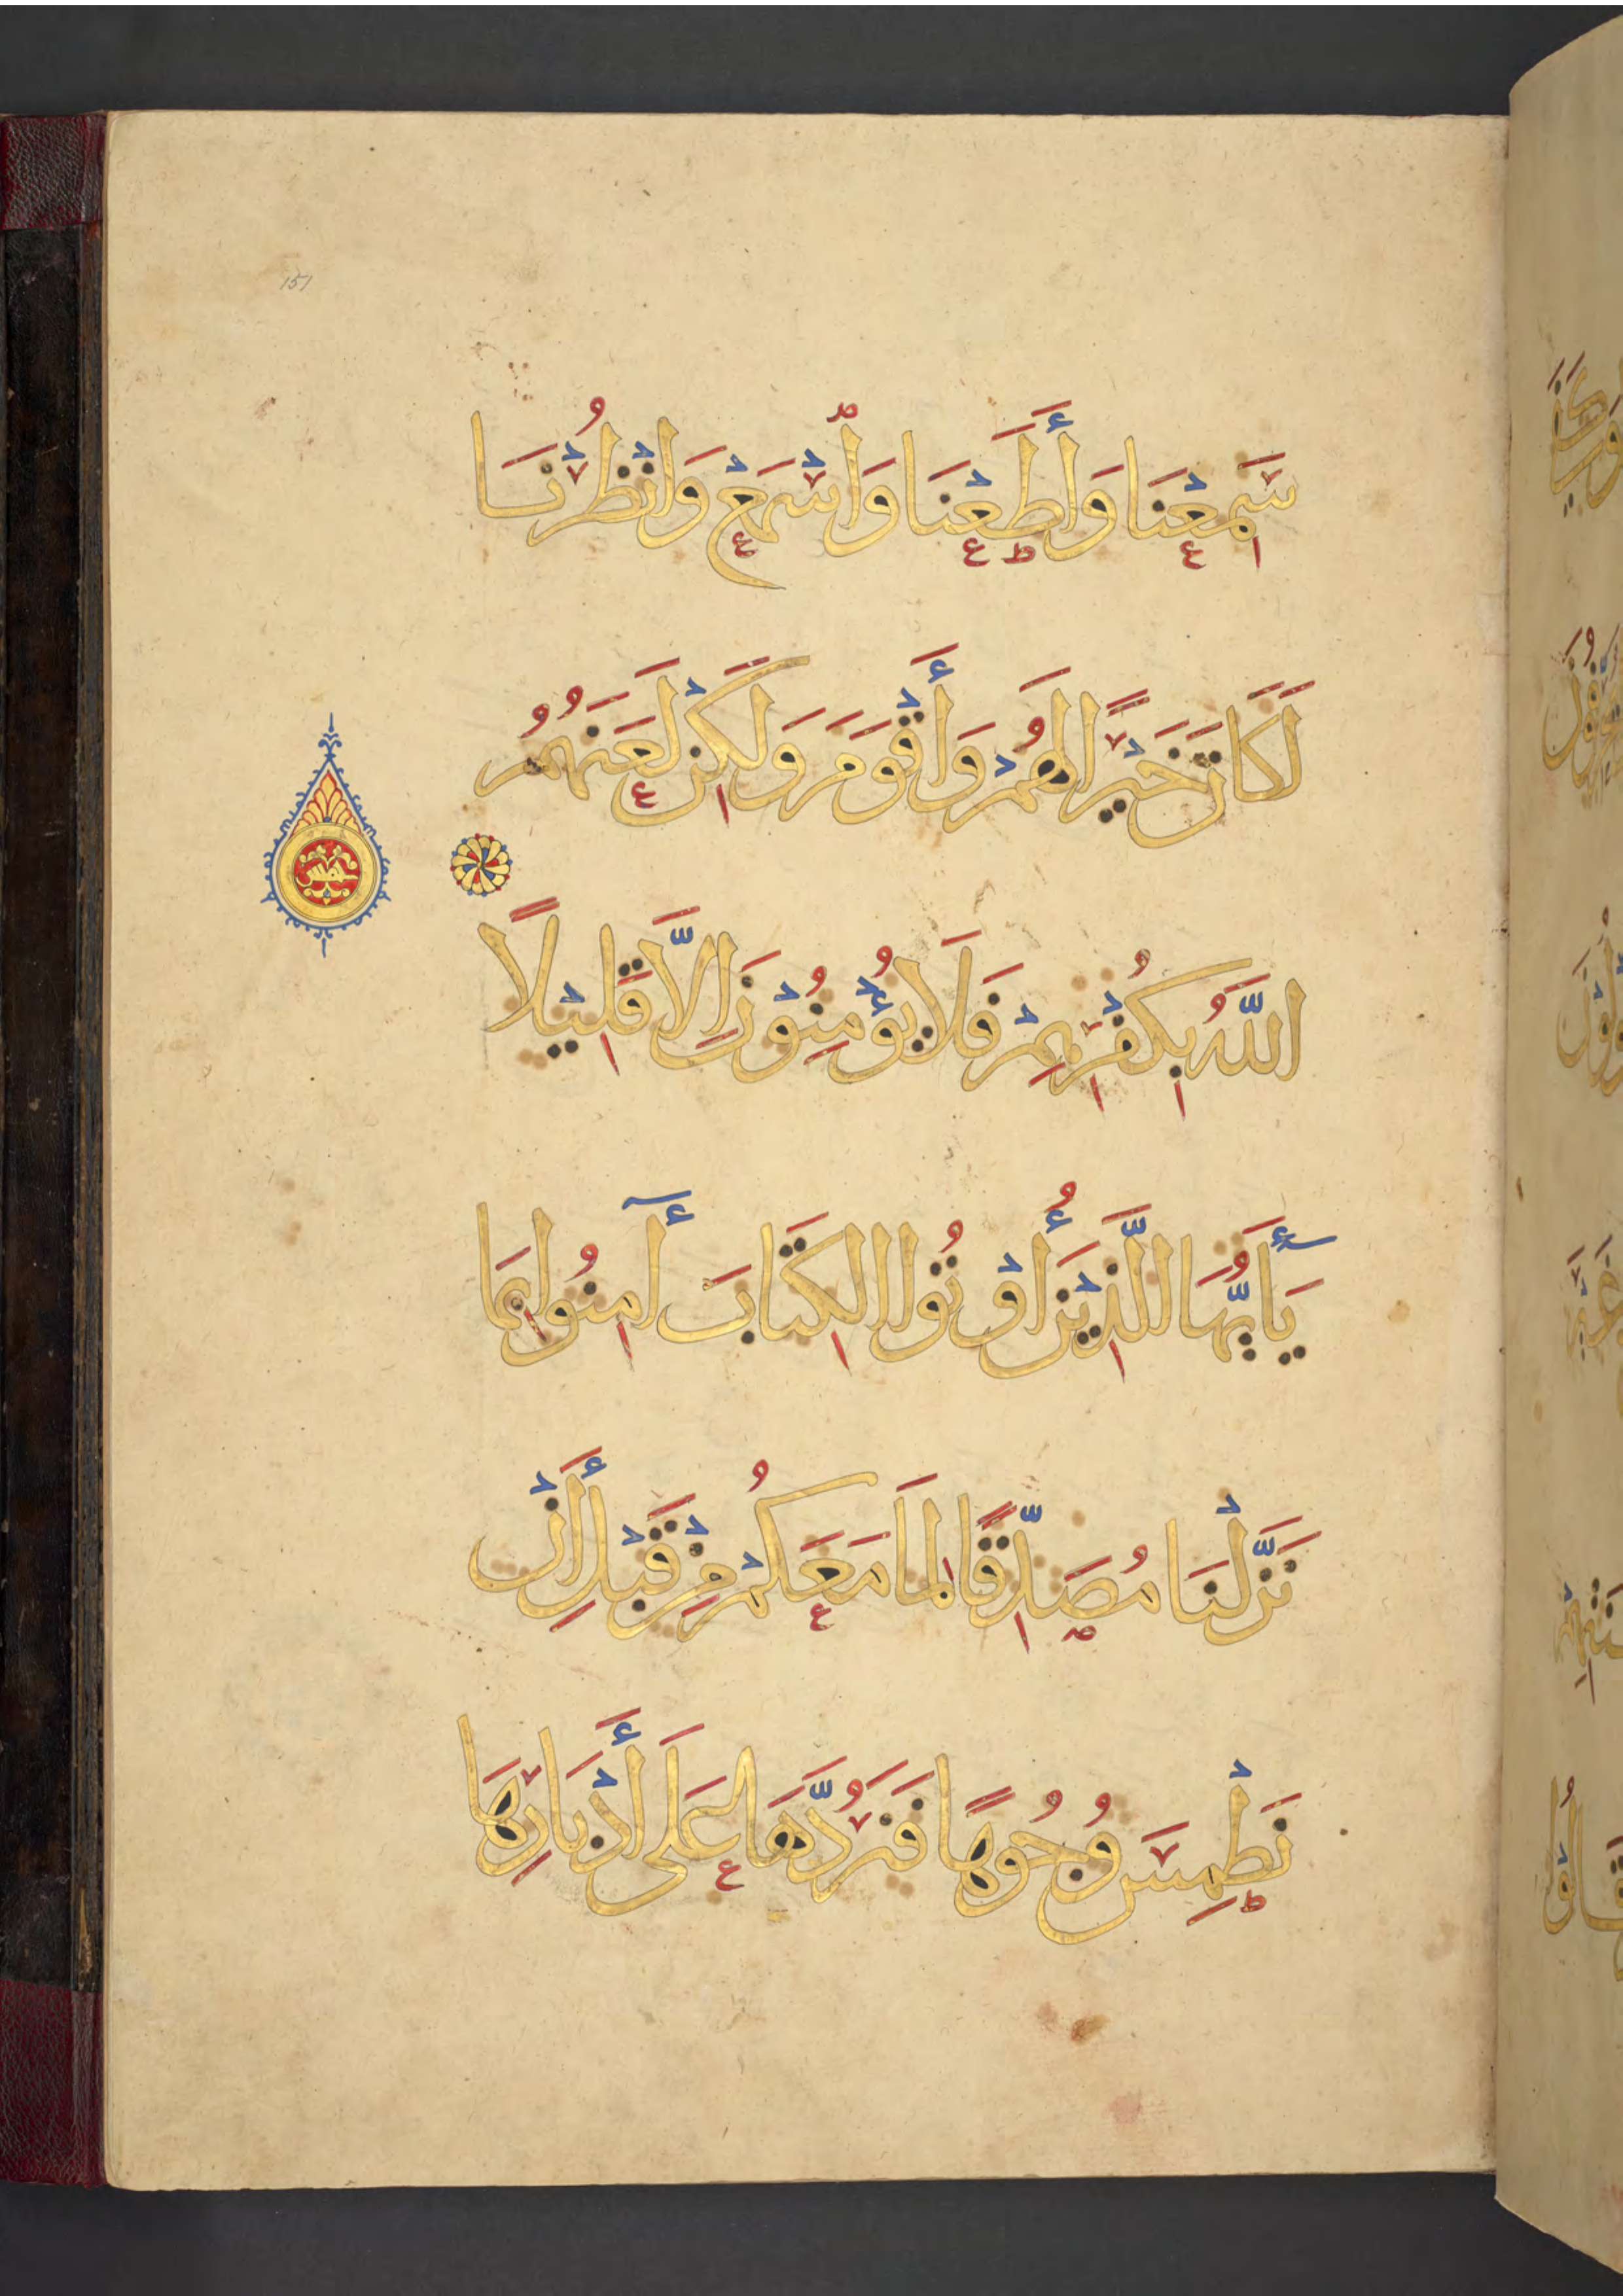 151
سَمِعْنَا وَأَطَعْنَا وَاسْمَعْ وَانْظُرْنَا
لَكَانَ خَيْرًا لَهُمْ وَأَقْوَمَ وَلَكِنْ لَعَنَهُمُ
اللَّهُ بِكُفْرِهِمْ فَلَا يُؤْمِنُوْنَ إِلَّا قَلِيْلًا
خمس
يَا أَيُّهَا الَّذِيْنَ أُوْتُوا الكِتَابَ آمِنُوا بِمَا
نَزَّلْنَا مُصَدِّقًا لِمَا مَعَكُمْ مِنْ قَبْلِ أَنْ
نَطْمِسَ وُجُوهًا فَنَرُدَّهَا عَلَى أَدْبَارِهَا